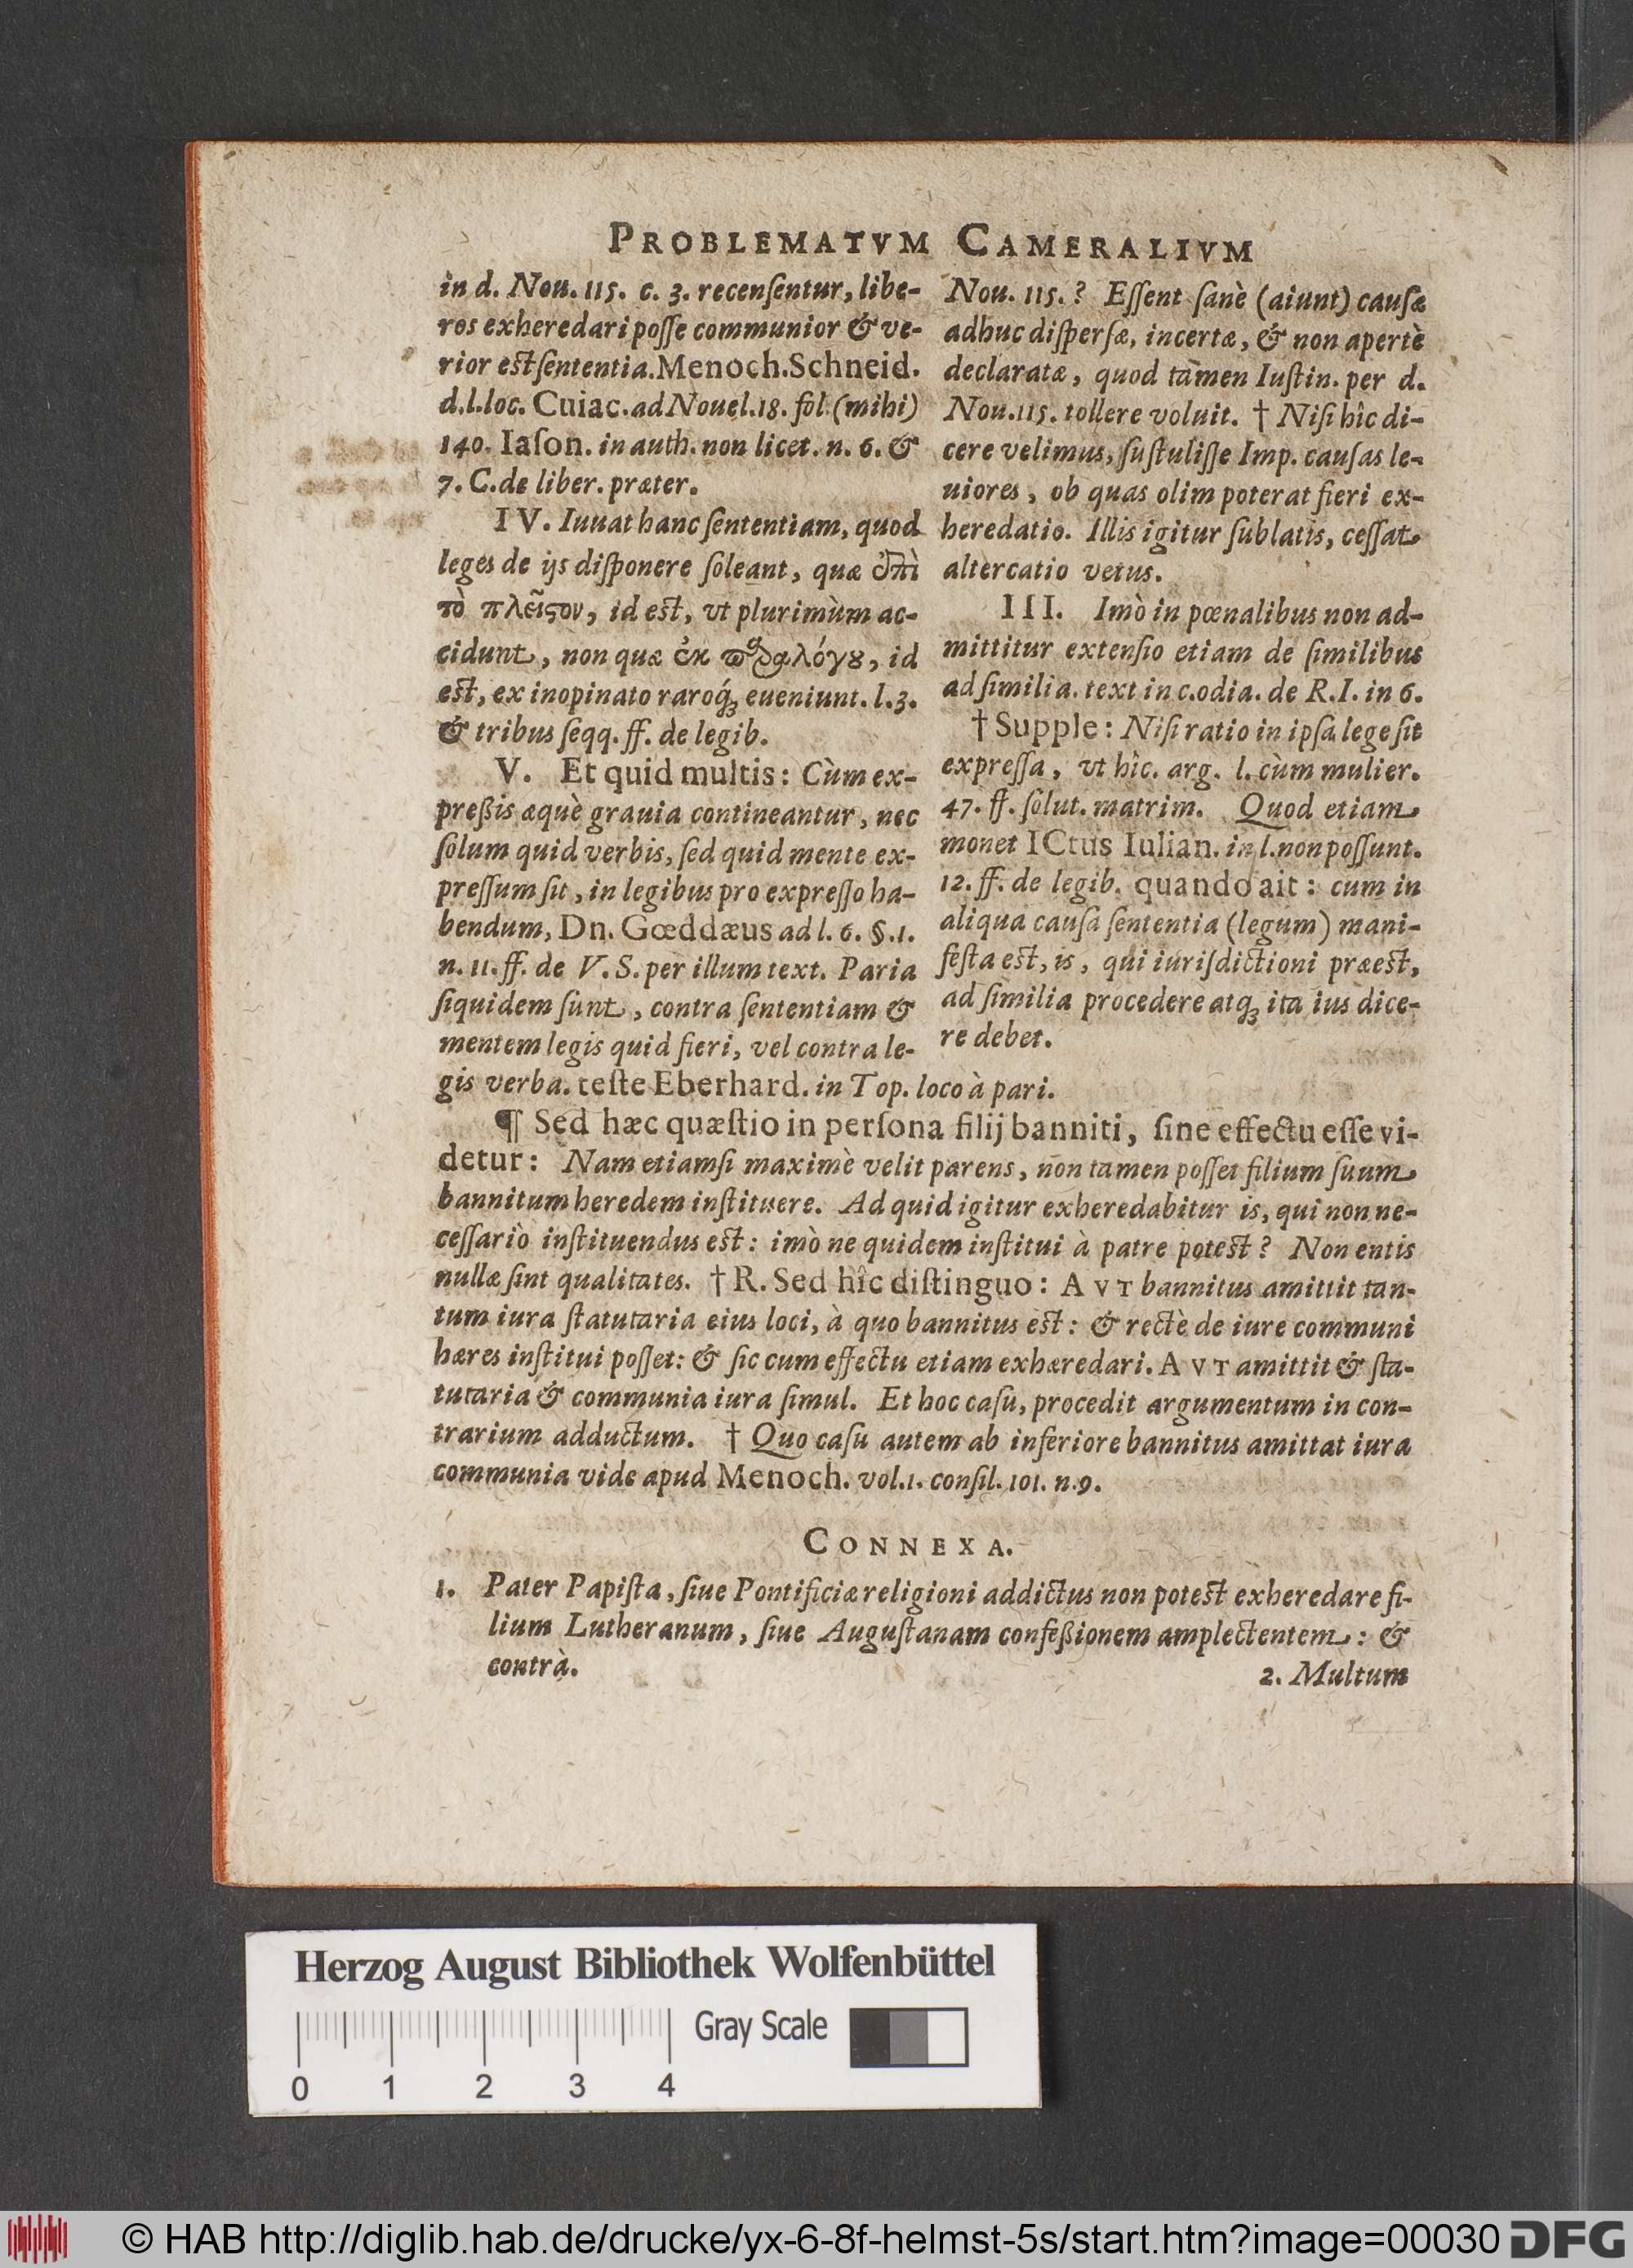 PROBLEMATVM CAMERALIVM
in d. Nou. 115. c. 3. recenſentur, libe-
ros exheredari poſſe communior & ve-
rior est ſententia. Menoch. Schneid.
d.l. loc. Cuiac. ad Nouel. 18. fol. (mihi)
140. Iaſon. in auth. non licet. n. 6. &
7. C. de liber. præter.
IV. Iuuat hanc ſententiam, quod
leges de ijs diſponere ſoleant, quæ ἐπὶ
τὸ πλεῖϛον, id est, vt plurimùm ac-
cidunt, non quæ ἐκ παραλόγȣ, id
est, ex inopinato raroq́ꝫ eueniunt. l. 3.
& tribus ſeqq. ff. de legib.
V. Et quid multis: Cùm ex-
preßis æquè grauia contineantur, nec
ſolum quid verbis, ſed quid mente ex-
preſſum ſit, in legibus pro expreſſo ha-
bendum, Dn. Gœddæus ad l. 6. §. 1.
n. 11. ff. de V. S. per illum text. Paria
ſiquidem ſunt, contra ſententiam &
mentem legis quid fieri, vel contra le-
gis verba. teſte Eberhard. in Top. loco à pari.
Nou. 115.? Eſſent ſanè (aiunt) cauſæ
adhuc diſperſæ, incertæ, & non apertè
declaratæ, quod tamen Iuſtin. per d.
Nou. 115. tollere voluit. † Niſi hîc di-
cere velimus, ſuſtuliſſe Imp. cauſas le-
uiores, ob quas olim poterat fieri ex-
heredatio. Illis igitur ſublatis, ceſſat
altercatio vetus.
III. Imò in pœnalibus non ad-
mittitur extenſio etiam de ſimilibus
ad ſimilia. text in c. odia. de R. I. in 6.
† Supple: Niſi ratio in ipſa lege ſit
expreſſa, vt hîc. arg. l. cùm mulier.
47. ff. ſolut. matrim. Quod etiam
monet ICtus Iulian. in l. non poſſunt.
12. ff. de legib. quando ait: cum in
aliqua cauſa ſententia (legum) mani-
feſta est, is, qui iuriſdictioni præest,
ad ſimilia procedere atqꝫ ita ius dice-
re debet.
¶ Sed hæc quæſtio in perſona filij banniti, ſine effectu eſſe vi-
detur: Nam etiamſi maximè velit parens, non tamen poſſet filium ſuum
bannitum heredem inſtituere. Ad quid igitur exheredabitur is, qui non ne-
ceſſariò inſtituendus est: imò ne quidem inſtitui à patre potest? Non entis
nullæ ſint qualitates. † R. Sed hîc diſtinguo: AVT bannitus amittit tan-
tum iura ſtatutaria eius loci, à quo bannitus est: & rectè de iure communi
hæres inſtitui poſſet: & ſic cum effectu etiam exhæredari. AVT amittit & ſta-
tutaria & communia iura ſimul. Et hoc caſu, procedit argumentum in con-
trarium adductum. † Quo caſu autem ab inferiore bannitus amittat iura
communia vide apud Menoch. vol. 1. conſil. 101. n. 9.
CONNEXA.
1. Pater Papiſta, ſiue Pontificiæ religioni addictus non potest exheredare fi-
lium Lutheranum, ſiue Auguſtanam confeßionem amplectentem: &
contrà.
2. Multum
Herzog August Bibliothek Wolfenbüttel
Gray Scale
0 1 2 3 4
© HAB http://diglib.hab.de/drucke/yx-6-8f-helmst-5s/start.htm?image=00030 DFG